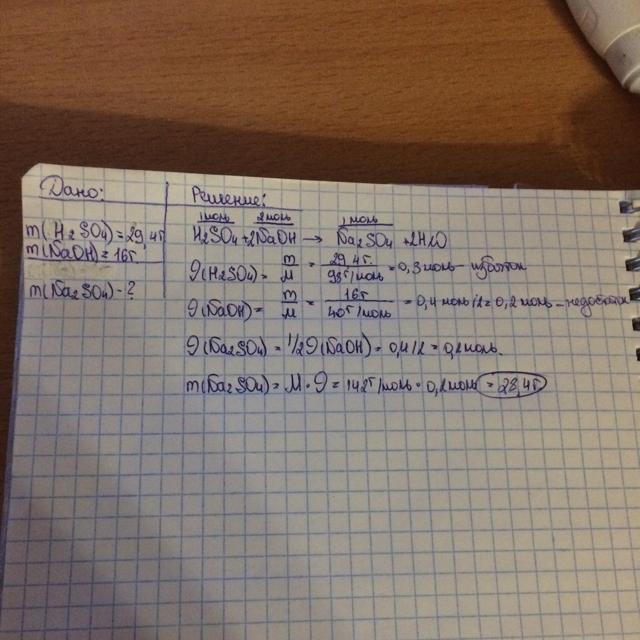 Дано:
m(H₂SO₄)=29,4г
m(NaOH)=16г
m(Na₂SO₄)-?
Решение:
1моль 2моль 1моль
H₂SO₄+2NaOH → Na₂SO₄+2H₂O
υ(H₂SO₄)= m/M = 29,4г/98г/моль = 0,3моль - избыток
υ(NaOH)= m/M = 16г/40г/моль = 0,4моль/2=0,2моль - недостаток
υ(Na₂SO₄)=1/2υ(NaOH)=0,4/2=0,2моль.
m(Na₂SO₄)=M·υ=142г/моль·0,2моль=28,4г